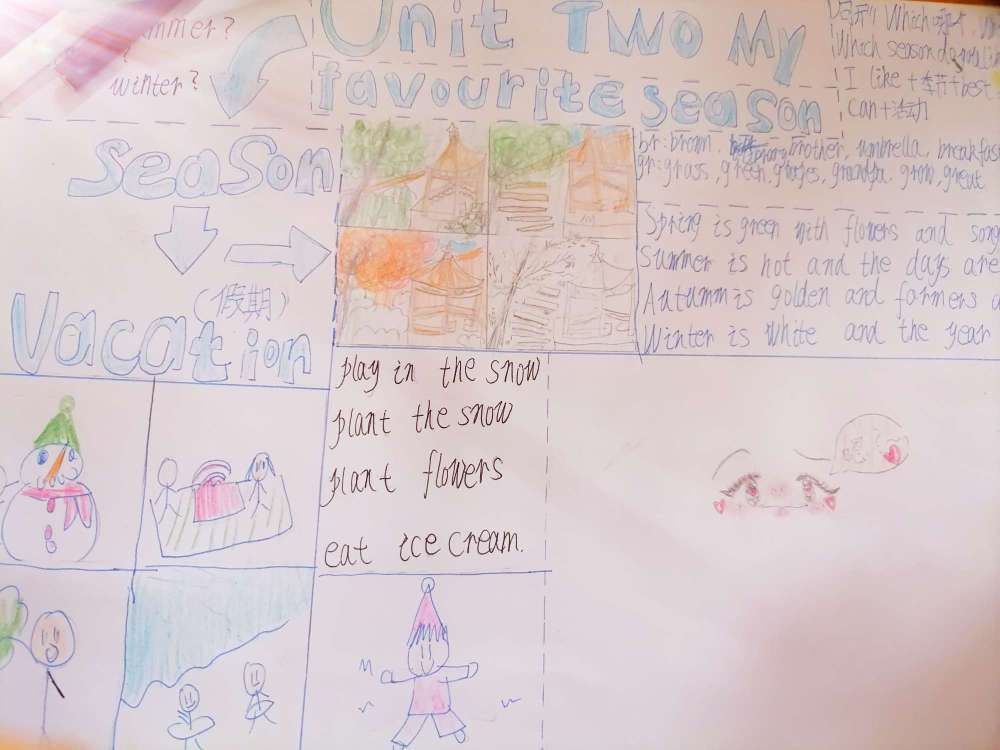 ummer?
?
winter?
Unit Two My
favourite season
Which
Which season do
I like + 季节 + best
can+活动
season
br: brown, brother, umbrella, breakfas
gr: grass, green, grapes, grandpa, grow, great
Spring is green with flowers and song
Summer is hot and the days are
Autumn is golden and farmers
Winter is white and the year
(假期)
Vacation
play in the snow
plant the snow
plant flowers
eat ice cream.